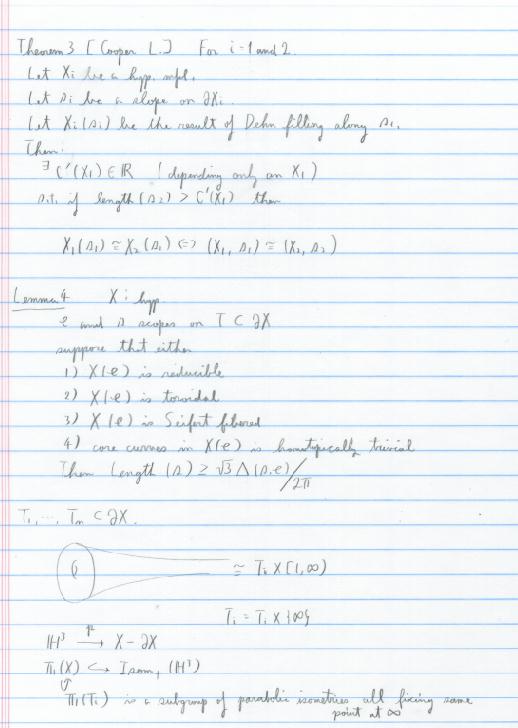 Theorem 3 [Cooper L.] For i = 1 and 2.
Let Xi be a hyp. mfd.
Let si be a slope on ∂Xi.
Let Xi(si) be the result of Dehn filling along si.
Then:
∃ C'(X1) ∈ ℝ (depending only on X1)
s.t. if length(s2) > C'(X1) then
X1(s1) ≅ X2(s2) ⇔ (X1, s1) ≅ (X2, s2)
Lemma 4 X : hyp
e and s scopes on T ⊂ ∂X
suppose that either
1) X(e) is reducible
2) X(e) is toroidal
3) X(e) is Seifert fibered
4) core curves in X(e) is homotopically trivial
Then Length(s) ≥ √3 Δ(s, e)/2π
T1, ..., Tn ⊂ ∂X.
≅ Ti × [1, ∞)
Ti = Ti × {∞}
ℍ³ →p X - ∂X
π1(X) ↪ Isom+(ℍ³)
π1(Ti) is a subgroup of parabolic isometries all fixing same
point at ∞